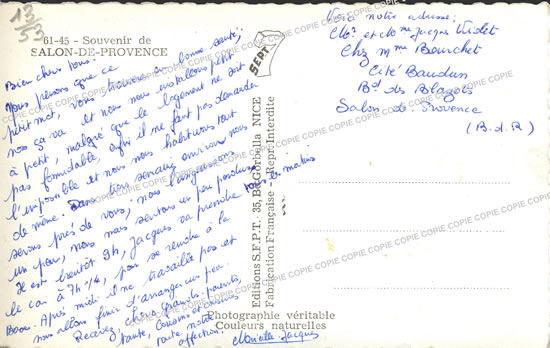 13/53
61-45 - Souvenir de
SALON-DE-PROVENCE
Bien chers tous.
Nous pensons que ce
petit mot, vous trouvera en bonne santé;
nos ça va et nous nous installons petit
à petit, malgré que le logement ne soit
pas formidable, enfin il ne faut pas demander
l'impossible et nous nous habituons tout
de même. Dans trois semaines environ nous
serons près de vous; nous languissons
un peu, nous nous sentons un peu perdus.
Il est bientôt 9h, Jacques va prendre tous les matins
le car à 7h 1/4, pour se rendre à la
Base. Après midi il ne travaille pas et
nous allons finir d'arranger un peu.
Recevez, chers grands-parents,
tante, cousins et cousines
toute notre
affection.
Mireille-Jacques
SEPT
Editions S.E.P.T. 35, Bd Gorbella NICE
Fabrication Française - Repr. Interdite
Photographie véritable
Couleurs naturelles
Voici notre adresse:
Mr. et Me Jacques Violet
Chez Mme Bouchet
Cité Baudun
Bd des Blazots
Salon de Provence
(B.d.R)
COPIE COPIE COPIE COPIE COPIE COPIE